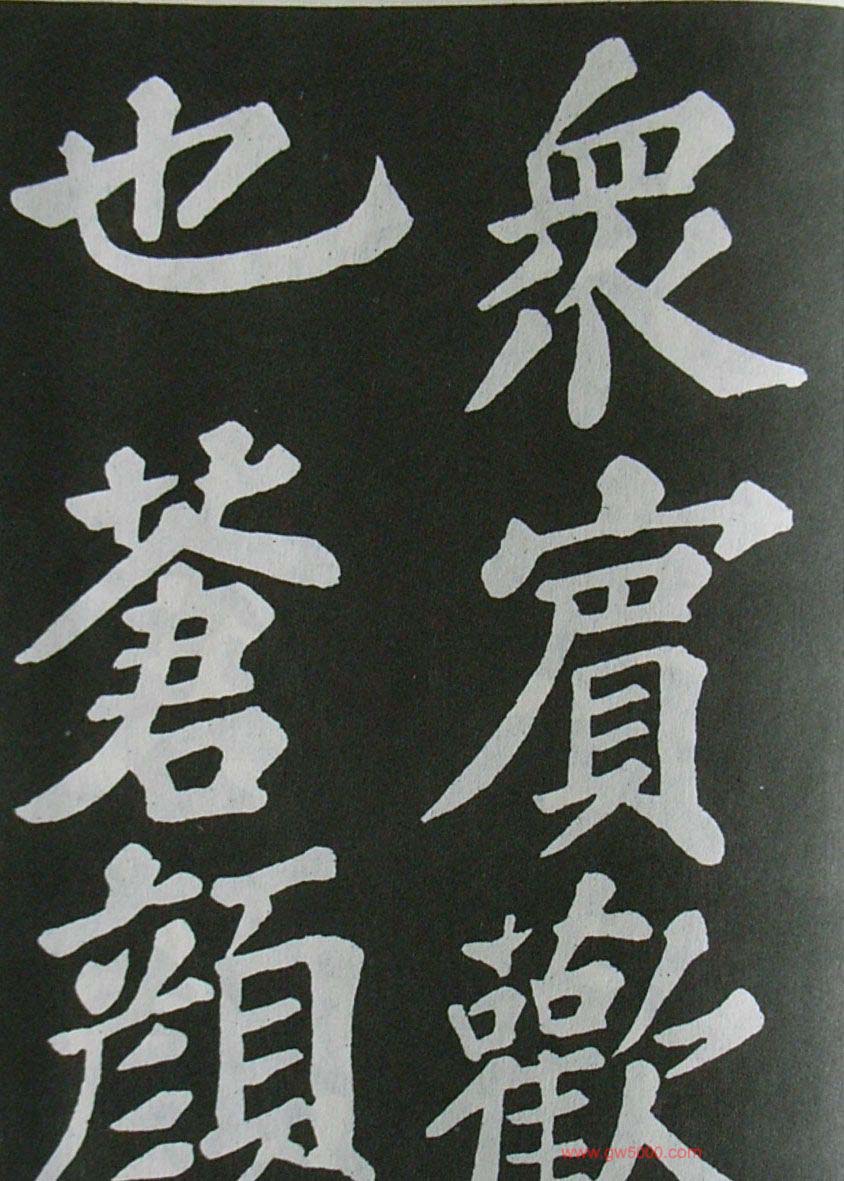 衆賓歡
也蒼顔
www.gw5000.com